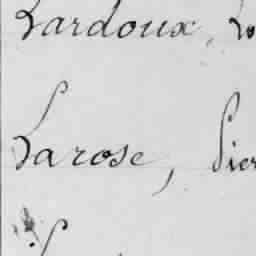 Lardoux, Lo
Larose, Pier